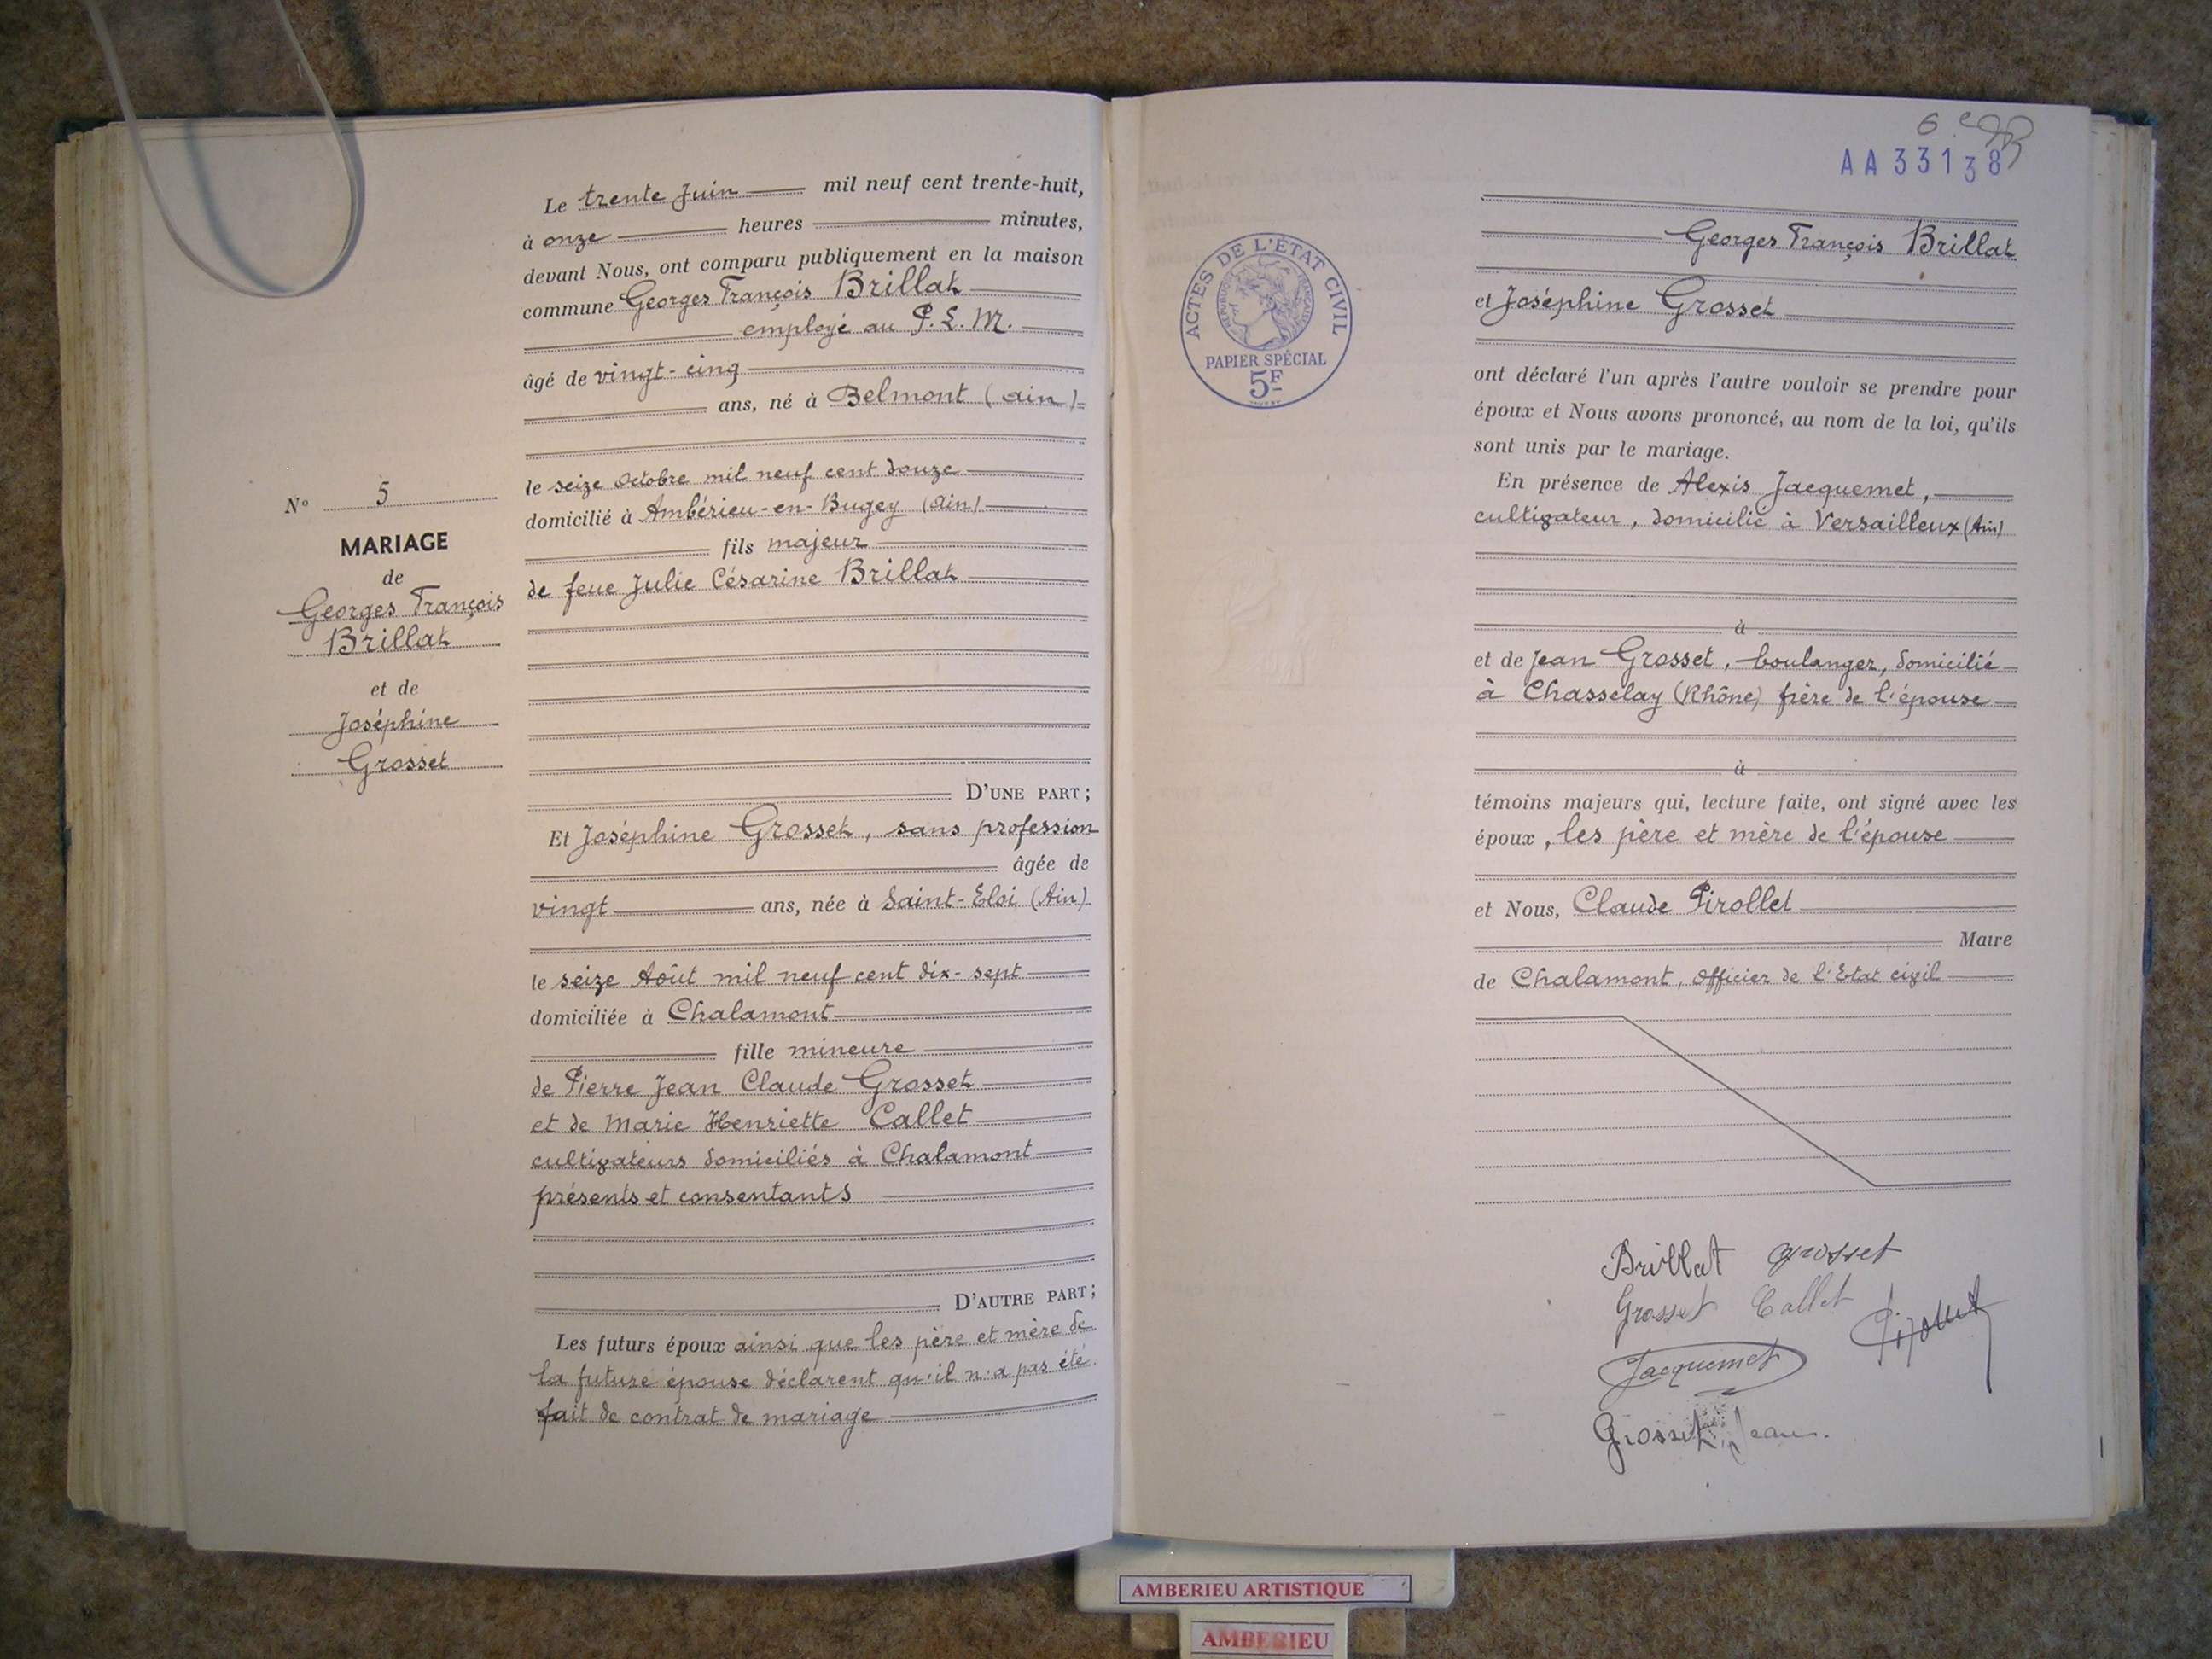 Le trente Juin mil neuf cent trente-huit,
à onze heures minutes,
devant Nous, ont comparu publiquement en la maison
commune Georges François Brillat
employé au P. L. M.
âgé de vingt-cinq
ans, né à Belmont (Ain)
le seize Octobre mil neuf cent douze
domicilié à Ambérieu-en-Bugey (Ain)
fils majeur
de feue Julie Césarine Brillat
N° 5
MARIAGE
de
Georges François
Brillat
et de
Joséphine
Grosset
D'UNE PART;
Et Joséphine Grosset, sans profession
âgée de
vingt ans, née à Saint-Eloi (Ain)
le seize Août mil neuf cent dix-sept
domiciliée à Chalamont
fille mineure
de Pierre Jean Claude Grosset
et de Marie Henriette Callet
cultivateurs domiciliés à Chalamont
présents et consentants
D'AUTRE PART;
Les futurs époux ainsi que les père et mère de
la future épouse déclarent qu'il n'a pas été
fait de contrat de mariage
6e
AA33138
ACTES DE L'ÉTAT CIVIL
RÉPUBLIQUE FRANÇAISE
PAPIER SPÉCIAL
5F
Georges François Brillat
et Joséphine Grosset
ont déclaré l'un après l'autre vouloir se prendre pour
époux et Nous avons prononcé, au nom de la loi, qu'ils
sont unis par le mariage.
En présence de Alexis Jacquemet,
cultivateur, domicilié à Versailleux (Ain)
à
et de Jean Grosset, boulanger, domicilié
à Chasselay (Rhône) frère de l'épouse
à
témoins majeurs qui, lecture faite, ont signé avec les
époux, les père et mère de l'épouse
et Nous, Claude Pirollet
Maire
de Chalamont, Officier de l'Etat civil
Brillat Grosset
Grosset Callet
Pirollet
Jacquemet
Grosset Jean.
AMBERIEU ARTISTIQUE
AMBERIEU